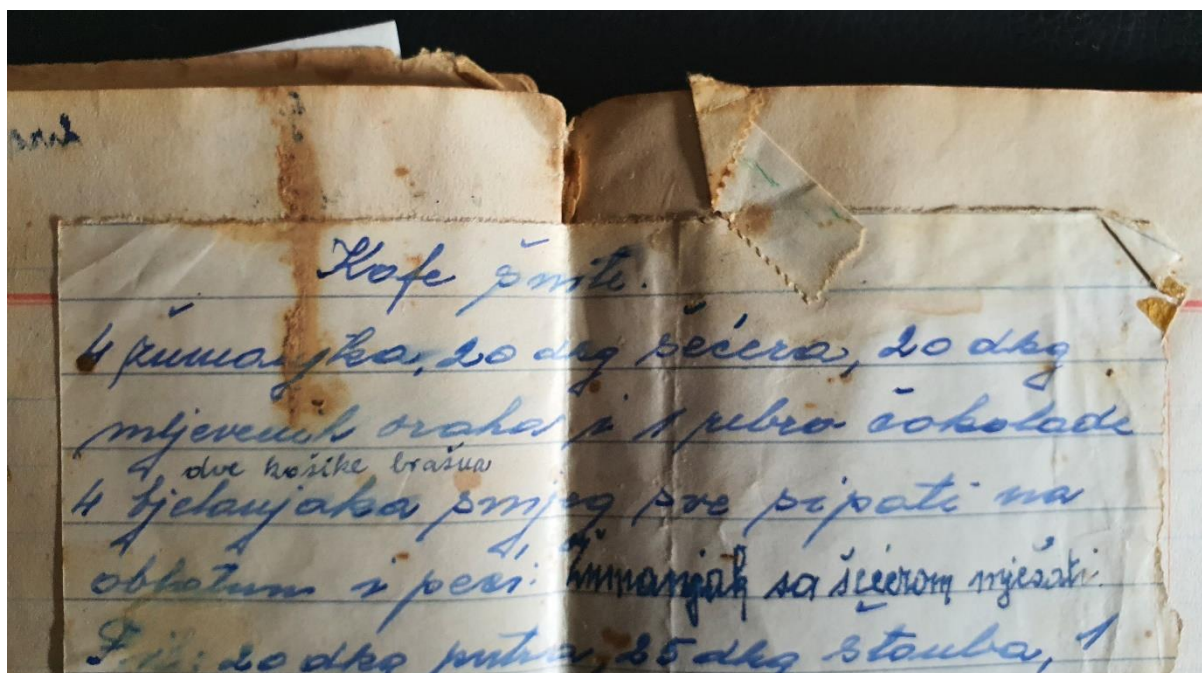 Kafe šnite.
4 žumanjka, 20 dkg šećera, 20 dkg
mljevenih oraha i 1 rebro čokolade
dve kašike brašna
4 bjelanjaka snijeg sve sipati na
oblatum i peći. žumanjak sa šećerom mješati.
Fil: 20 dkg putra 25 dkg štauba, 1